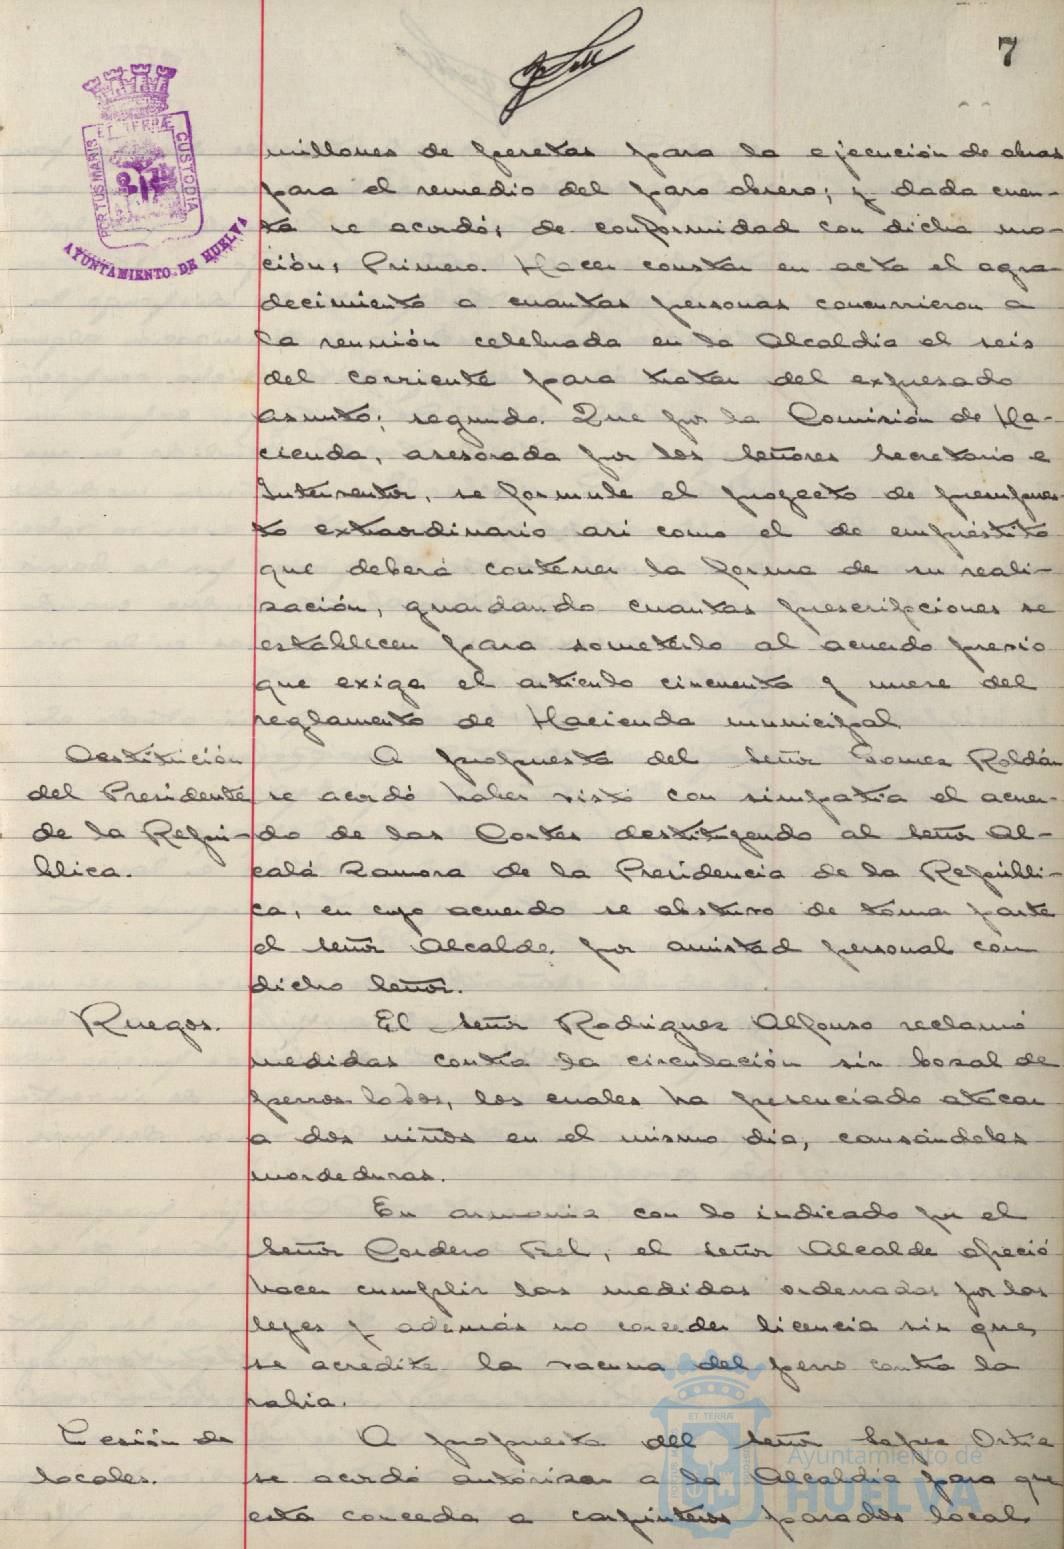 7
ET TERRÆ
PORTUS MARIS
CUSTODIA
AYUNTAMIENTO DE HUELVA
millones de pesetas para la ejecución de obras
para el remedio del paro obrero; y dada cuen-
ta se acordó, de conformidad con dicha mo-
ción, Primero. Hacer constar en acta el agra-
decimiento a cuantas personas concurrieron a
la reunión celebrada en la Alcaldía el seis
del corriente para tratar del expresado
asunto; segundo. Que por la Comisión de Ha-
cienda, asesorada por los señores Secretario e
Interventor, se formule el proyecto de presupues-
to extraordinario así como el de empréstito
que deberá contener la forma de su reali-
zación, guardando cuantas prescripciones se
establecen para someterlo al acuerdo previo
que exige el artículo cincuenta y nueve del
reglamento de Hacienda municipal
Destitución
del Presidente
de la Repú-
blica.
A propuesta del Señor Gomez Roldán
se acordó haber visto con simpatía el acuer-
do de las Cortes destituyendo al Señor Al-
calá Zamora de la Presidencia de la Repúbli-
ca, en cuyo acuerdo se abstuvo de tomar parte
el señor Alcalde, por amistad personal con
dicho Señor.
Ruegos.
El señor Rodriguez Alfonso reclamó
medidas contra la circulación sin bozal de
perros lobos, los cuales ha presenciado atacar
a dos niños en el mismo día, causándoles
mordeduras.
En armonia con lo indicado por el
Señor Cordero Bel, el señor Alcalde ofreció
hacer cumplir las medidas ordenadas por las
leyes y además no conceder licencia sin que
se acredite la vacuna del perro contra la
rabia.
Cesión de
locales.
A propuesta del Señor Lopez Ortiz
se acordó autorizar a la Alcaldía para que
esta conceda a carpinteros parados local
ET TERRA
Ayuntamiento de
HUELVA